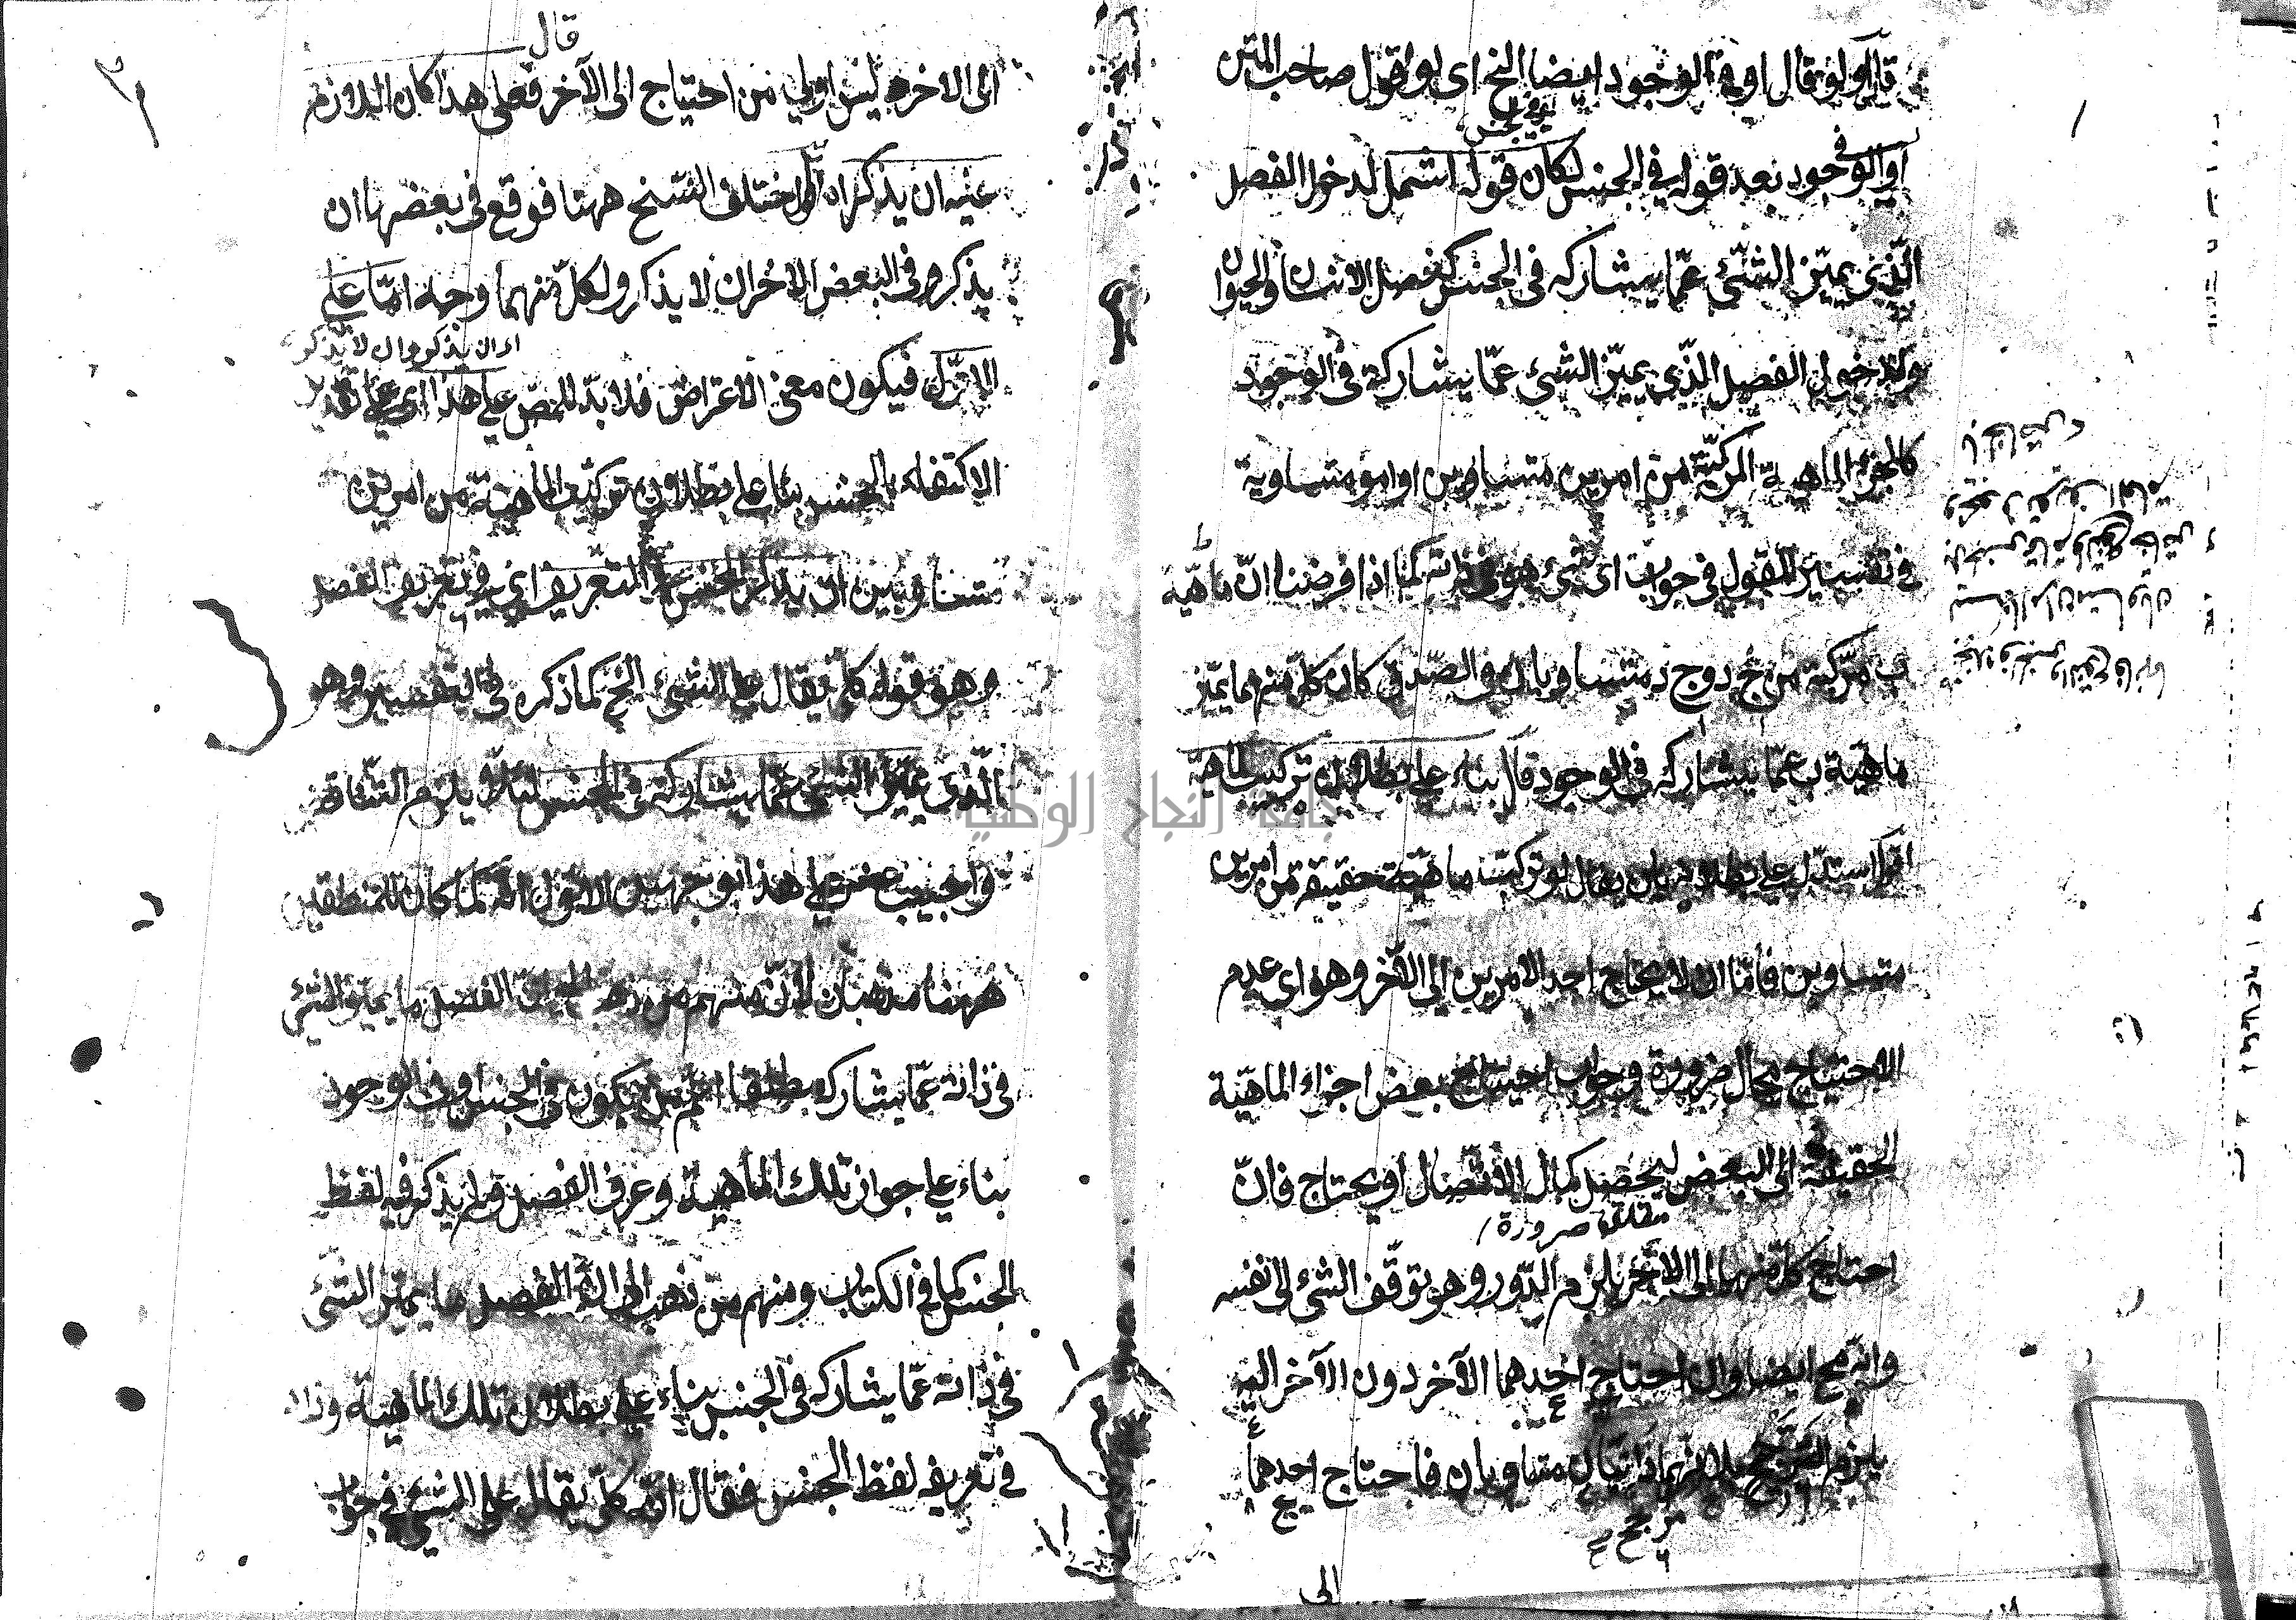 قال ولو قال او في الوجود ايضا الخ اى لو قول صاحب المتن
او في الوجود بعد قوله في الجنس لكان قوله اشمل لدخول الفصل
الّذى يميّز الشئ عمّا يشاركه في الجنس كفصل الانسان والحيوان
ولدخول الفصل الّذى يميّز الشئ عمّا يشاركه في الوجود
كالجزء الماهية المركبّة من امرين متساويين او امور متساوية
في تفسير المقول في جواب اى شئ هو في ذاته كما اذا فرضنا انّ ماهيّة
ب مركبة من ج د و ج د متساويان في الصّدق كان كلّ منهما يميّز
ماهيّة ب عمّا يشاركه في الوجود قال بناء على بطلان تركيب الماهيّة
اقول استدل على بطلانه بان يقال لو تركبت ماهيّة حقيقة من امرين
متساويين فامّا ان لا يحتاج احد الامرين الى الآخر وهو اى عدم
الاحتياج محال ضرورة وجوب احتياج بعض اجزاء الماهيّة
الحقيقة الى البعض ليحصل كمال الاتّصال او يحتاج فان
متعلق ضرورة
احتاج كلّ منهما الى الآخر يلزم الدّور وهو توقّف الشئ الى نفسه
وانّه مح ايضا وان احتاج احدهما الآخر دون الآخر اليه
يلزم الترجيح بلا مرجح ذاتيّان متساويان فاحتاج احدهما
الى
قال
الى الآخر ليس اولى من احتياج الى الآخر فعلى هذا كان اللازم
عليه ان يذكراه اقول اختلف النسخ ههنا فوقع في بعضها ان
يذكر وفي البعض الاخر ان لا يذكر ولكلّ منهما وجه امّا على
اى ان يذكر وان لا يذكر
الاوّل فيكون معنى الاعتراض فلا بدّ للمصّ على هذا اى على تقدير
الاكتفاء بالجنس بناء على بطلان تركيب الماهيّة من امرين
متساويين ان يذكر الجنس في التعريف اى في تعريف الفصل
وهو قوله كلّى يقال على الشئ الخ كما ذكره في التفسير وهو
الّذى يميّز الشئ عمّا يشاركه في الجنس لئلّا يلزم التّناقض
واجيب عن هذا بوجهين الاوّل انّه لمّا كان للمنطقيين
ههنا مذهبان لانّ منهم من ذهب الى انّ الفصل ما يميّز الشئ
في ذاته عمّا يشاركه مطلقا اعم من يكون في الجنس او في الوجود
بناء على جواز تلك الماهيّة وعرّف الفصل ولم يذكر فيه لفظ
الجنس كما في الكتاب ومنهم من ذهب الى انّ الفصل ما يميّز الشئ
في ذاته عمّا يشاركه في الجنس بناء على بطلان تلك الماهيّة وزاد
في تعريفه لفظ الجنس فقال انّه كلّى يقال على الشئ في جواب
جامعة النجاح الوطنية